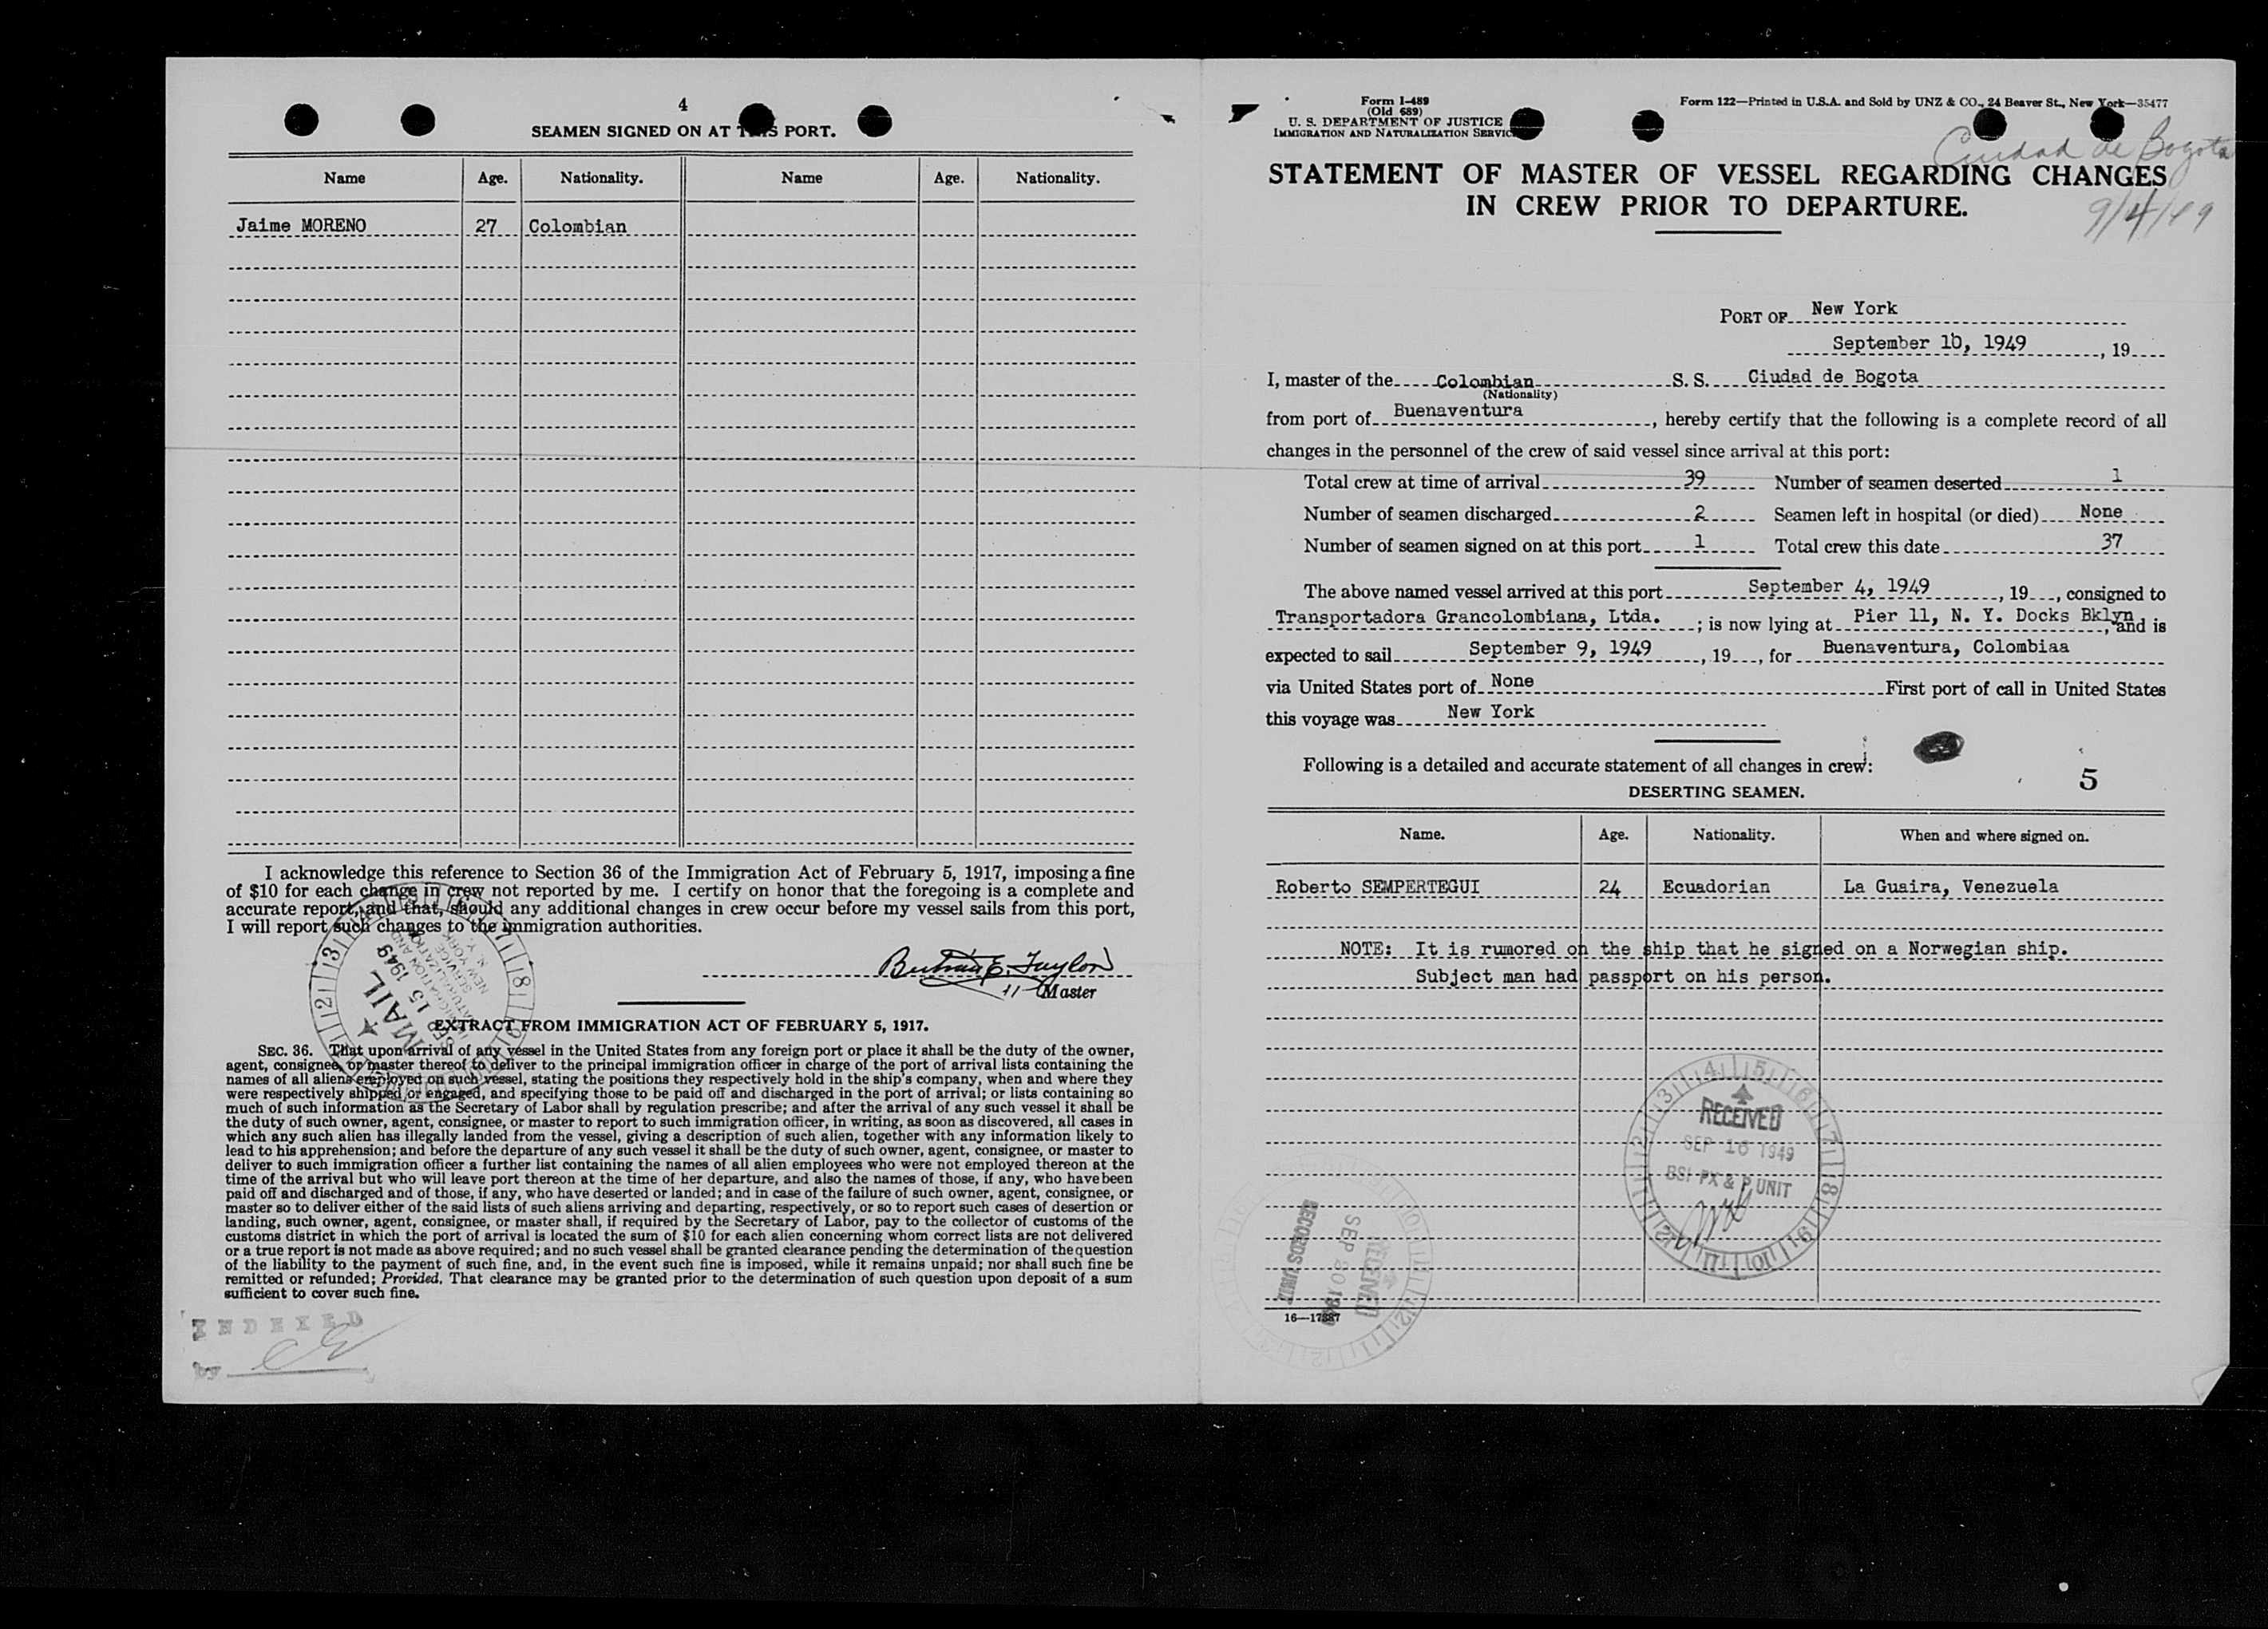 4
SEAMEN SIGNED ON AT THIS PORT.
Name Age. Nationality. Name Age. Nationality.
Jaime MORENO 27 Colombian
I acknowledge this reference to Section 36 of the Immigration Act of February 5, 1917, imposing a fine
of $10 for each change in crew not reported by me. I certify on honor that the foregoing is a complete and
accurate report, and that, should any additional changes in crew occur before my vessel sails from this port,
I will report such changes to the immigration authorities.
Taylor
Master
MAIL
SEP 15 1949
IMMIGRATION AND
NATURALIZATION
SERVICE
NEW YORK
N. Y.
EXTRACT FROM IMMIGRATION ACT OF FEBRUARY 5, 1917.
SEC. 36. That upon arrival of any vessel in the United States from any foreign port or place it shall be the duty of the owner,
agent, consignee, or master thereof to deliver to the principal immigration officer in charge of the port of arrival lists containing the
names of all aliens employed on such vessel, stating the positions they respectively hold in the ship's company, when and where they
were respectively shipped or engaged, and specifying those to be paid off and discharged in the port of arrival; or lists containing so
much of such information as the Secretary of Labor shall by regulation prescribe; and after the arrival of any such vessel it shall be
the duty of such owner, agent, consignee, or master to report to such immigration officer, in writing, as soon as discovered, all cases in
which any such alien has illegally landed from the vessel, giving a description of such alien, together with any information likely to
lead to his apprehension; and before the departure of any such vessel it shall be the duty of such owner, agent, consignee, or master to
deliver to such immigration officer a further list containing the names of all alien employees who were not employed thereon at the
time of the arrival but who will leave port thereon at the time of her departure, and also the names of those, if any, who have been
paid off and discharged and of those, if any, who have deserted or landed; and in case of the failure of such owner, agent, consignee, or
master so to deliver either of the said lists of such aliens arriving and departing, respectively, or so to report such cases of desertion or
landing, such owner, agent, consignee, or master shall, if required by the Secretary of Labor, pay to the collector of customs of the
customs district in which the port of arrival is located the sum of $10 for each alien concerning whom correct lists are not delivered
or a true report is not made as above required; and no such vessel shall be granted clearance pending the determination of the question
of the liability to the payment of such fine, and, in the event such fine is imposed, while it remains unpaid; nor shall such fine be
remitted or refunded; Provided, That clearance may be granted prior to the determination of such question upon deposit of a sum
sufficient to cover such fine.
INDEXED
by
Form I-489
(Old 689)
U. S. DEPARTMENT OF JUSTICE
IMMIGRATION AND NATURALIZATION SERVICE
Form 122—Printed in U.S.A. and Sold by UNZ & CO., 24 Beaver St., New York—35477
Ciudad de Bogota
9/4/49
STATEMENT OF MASTER OF VESSEL REGARDING CHANGES
IN CREW PRIOR TO DEPARTURE.
PORT OF New York
September 10, 1949, 19
I, master of the Colombian S. S. Ciudad de Bogota
(Nationality)
from port of Buenaventura, hereby certify that the following is a complete record of all
changes in the personnel of the crew of said vessel since arrival at this port:
Total crew at time of arrival 39 Number of seamen deserted 1
Number of seamen discharged 2 Seamen left in hospital (or died) None
Number of seamen signed on at this port 1 Total crew this date 37
The above named vessel arrived at this port September 4, 1949, 19, consigned to
Transportadora Grancolombiana, Ltda.; is now lying at Pier 11, N. Y. Docks Bklyn, and is
expected to sail September 9, 1949, 19, for Buenaventura, Colombiaa
via United States port of None First port of call in United States
this voyage was New York
Following is a detailed and accurate statement of all changes in crew:
5
DESERTING SEAMEN.
Name. Age. Nationality. When and where signed on.
Roberto SEMPERTEGUI 24 Ecuadorian La Guaira, Venezuela
NOTE: It is rumored on the ship that he signed on a Norwegian ship.
Subject man had passport on his person.
RECEIVED
SEP 16 1949
BSI PX & P UNIT
RECEIVED
SEP 20
RECORDS UNIT
16—17887